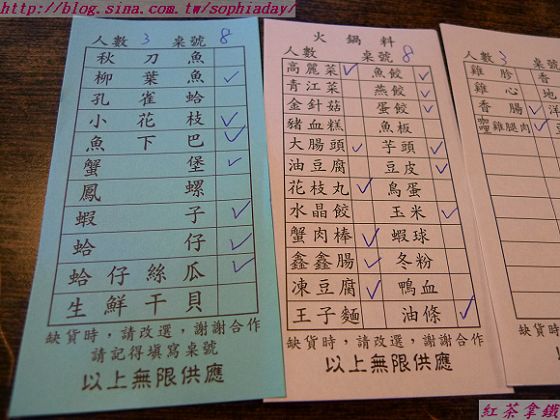 http://blog.sina.com.tw/sophiaday/
人數 3 桌號 8
秋刀魚
柳葉魚
孔雀蛤
小花枝
魚下巴
蟹堡
鳳螺
蝦子
蛤仔
蛤仔絲瓜
生鮮干貝
缺貨時，請改選，謝謝合作
請記得填寫桌號
以上無限供應
火鍋料
人數 桌號 8
高麗菜 魚餃
青江菜 燕餃
金針菇 蛋餃
豬血糕 魚板
大腸頭 芋頭
油豆腐 豆皮
花枝丸 鳥蛋
水晶餃 玉米
蟹肉棒 蝦球
鑫鑫腸 冬粉
凍豆腐 鴨血
王子麵 油條
缺貨時，請改選，謝謝合作
以上無限供應
人數 3 桌
雞胗 香
雞心 地
香腸 洋
咖哩雞腿肉
紅茶拿鐵